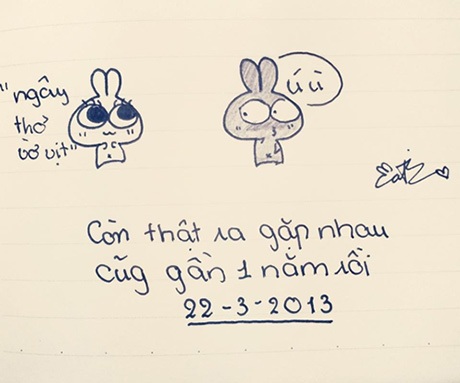 "ngây
thơ
vơ vịt"
úù
Còn thật ra gặp nhau
cũg gần 1 năm rồi
22-3-2013